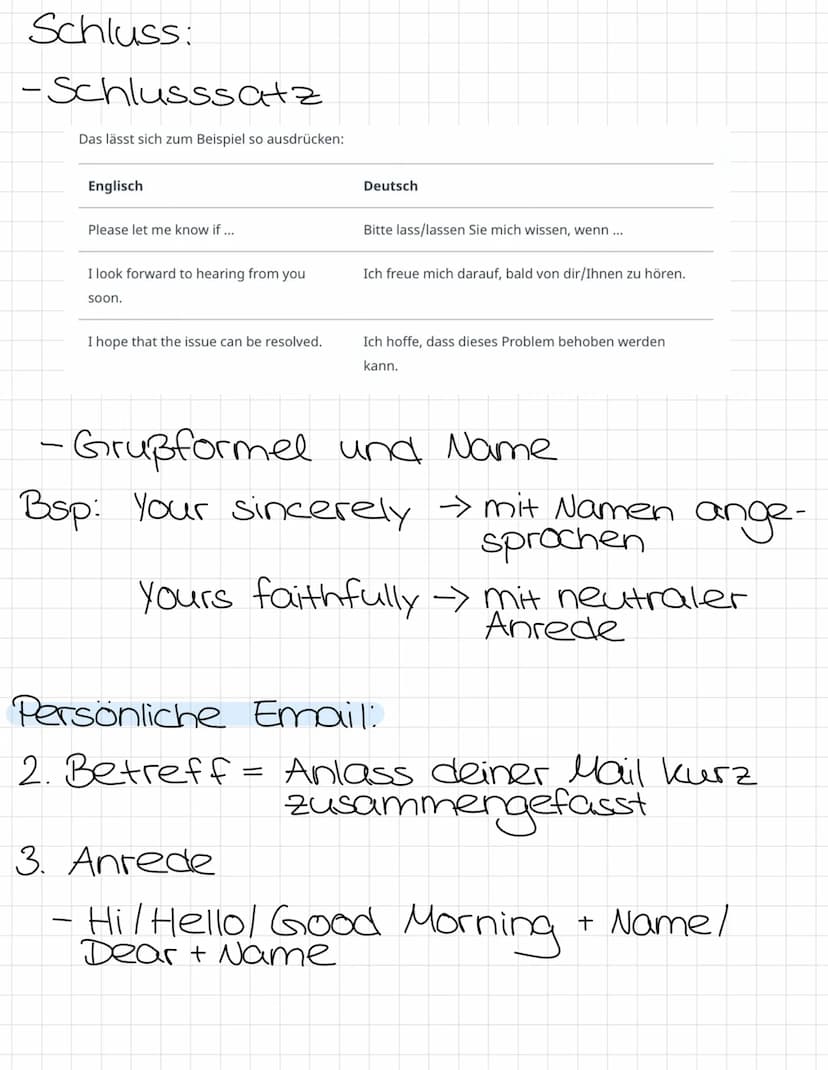 Schluss:
- Schlusssatz
Das lässt sich zum Beispiel so ausdrücken:
Englisch Deutsch
Please let me know if ... Bitte lass/lassen Sie mich wissen, wenn ...
I look forward to hearing from you Ich freue mich darauf, bald von dir/Ihnen zu hören.
soon.
I hope that the issue can be resolved. Ich hoffe, dass dieses Problem behoben werden
kann.
- Grußformel und Name
Bsp: Your sincerely → mit Namen ange-
sprochen
Yours faithfully → mit neutraler
Anrede
Persönliche Email:
2. Betreff = Anlass deiner Mail kurz
zusammengefasst
3. Anrede
- Hi/Hello/Good Morning + Name/
Dear + Name